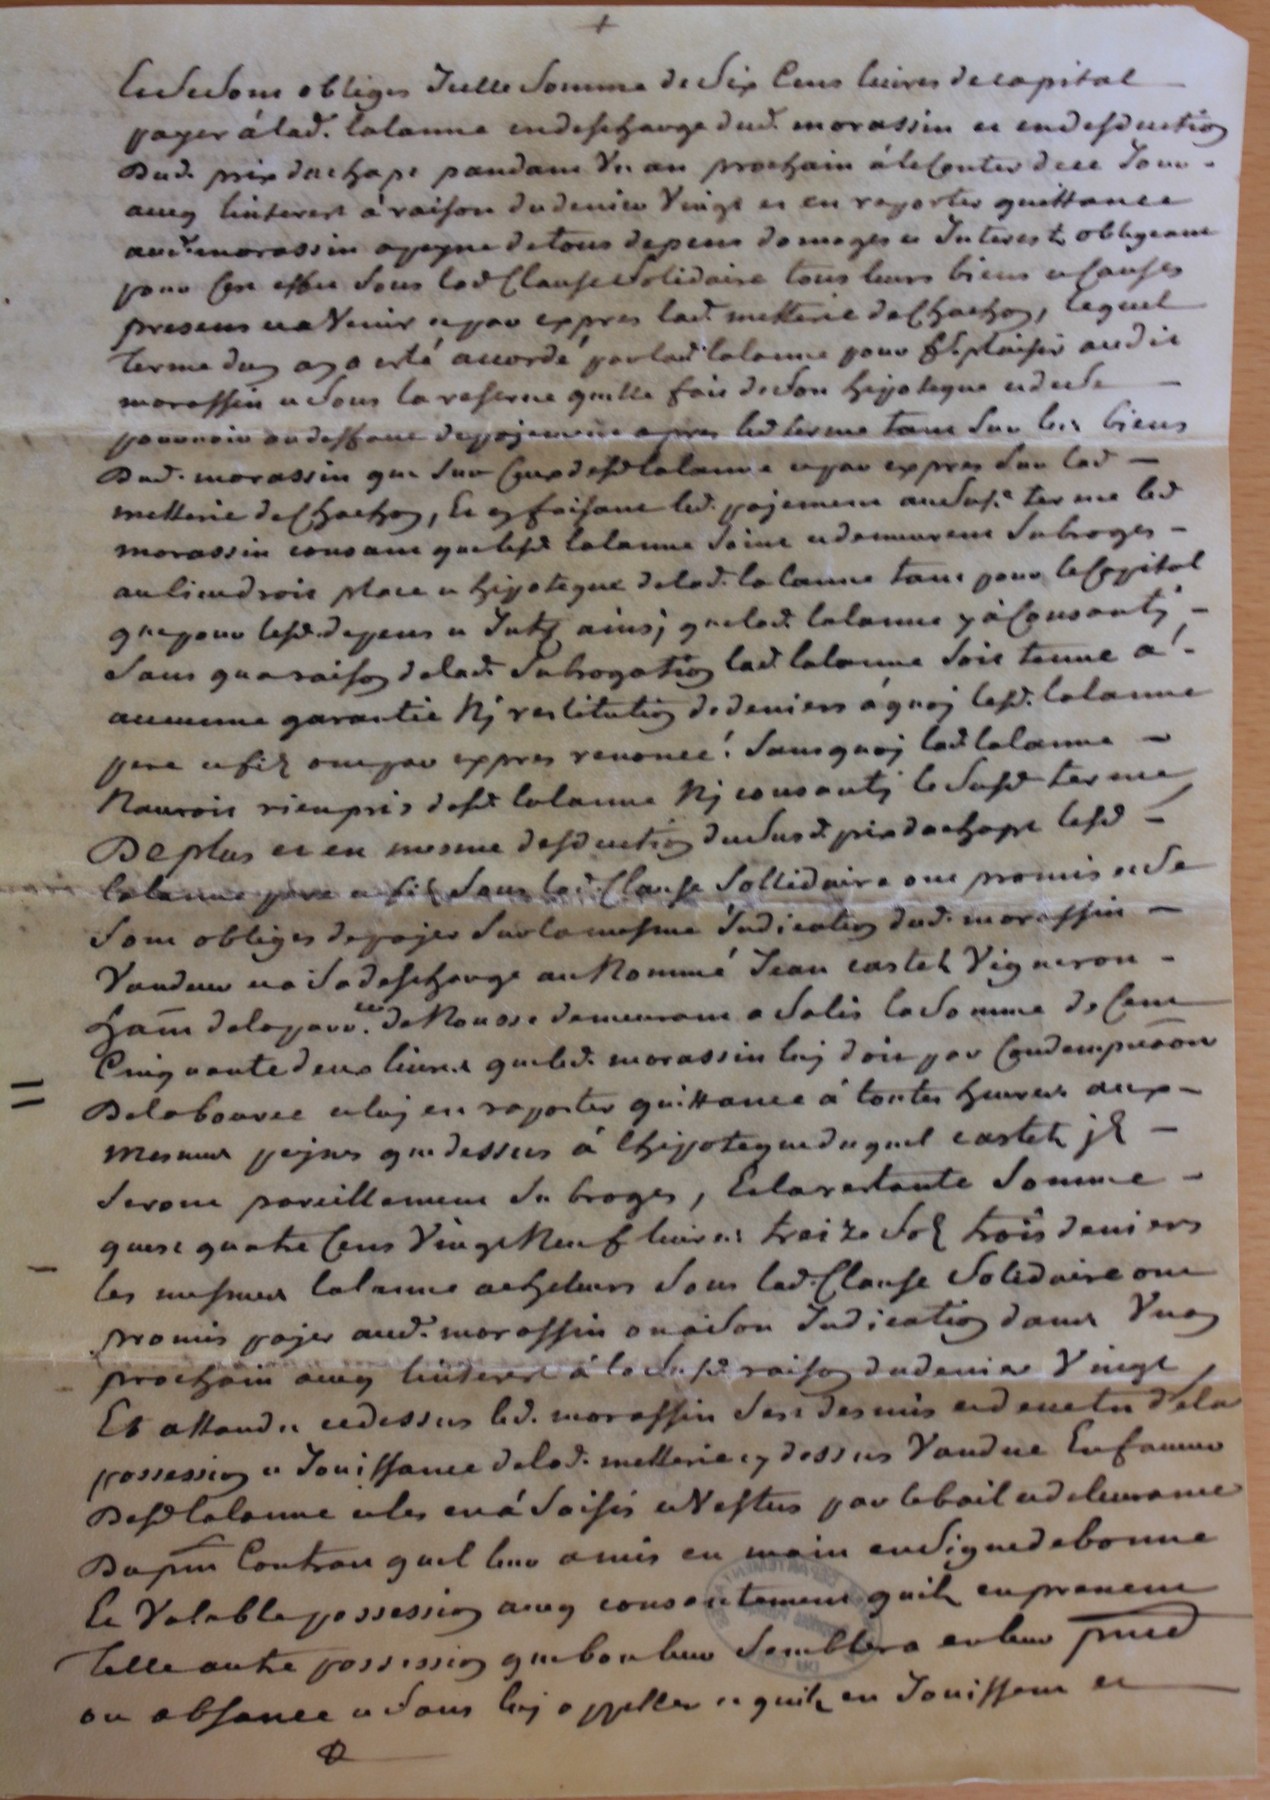 Et se sont obliges Icelle somme de six cens livres de capital
payer à lad. lalanne en descharge dud. morassin et en desduction
Dud. prix dachapt pandant Un an prochain à le conter de ce Jour
avecq linterest à raison du denier Vingt et en raporter quittance
aud. morassin a peyne de tous depens domages et Interests obligeant
pour cest effet sous lad Clause Solidaire tous leurs biens et causes
presens et a Venir et par expres lad. metterie de Chachon, lequel
terme dun an a esté accordé par lad lalanne pour fe plaisir audit
morassin et sous la reserve quelle fait de son hipoteque et de se
pourvoir au deffaut de payement apres led terme tant sur les biens
Dud. morassin que sur ceux desd lalanne et par expres sur lad
metterie de Chachon, Et en faisant led. payement au sus.d terme led
morassin consant que lesd lalanne soint et demeurent subroges
au lieu droit place et hipoteque de lad. lalanne tant pour le Capital
que pour lesd. depens et Intz ainsj que lad. lalanne y à Consantj
sans qua raison de lad. Subrogation lad. lalanne soit tenue a
aucunne garantie Nj restitution de deniers à quoj lesd. lalanne
pere et filz ont par expres renoncé. sans quoj lad lalanne
Nauroit rien pris desd. lalanne Nj consantj le susd. terme
De plus et en mesme desduction du susd. prix dachapt lesd
lalanne pere et filz sous lad. Clause Sollidaire ont promis et se
sont obliges de payer sur la mesme Indication dud. morassin
Vandeur et a sa descharge au Nommé Jean castet Vigneron
ham de la parr.sse de Nousse demeurant a Salis la somme de Cent
Cinquante deux livres que led. morassin luj doit par Condempnaon
De la bource et luj en raporter quittance à toutes heures aux
mesmes peynes que dessus à lhipoteque duquel castet jlz
seront pareillement Subroges, Et la restante somme
quest quatre Cens Vingt Neuf livres treize solz trois deniers
les mesmes lalanne acheteurs sous lad. Clause Solidaire ont
promis payer aud. morassin ou a son Indication dans Vn an
prochain avecq linterest à la susd. raison du denier Vingt
Et attandu ce dessus led. morassin sest desmis et devetu de la
possession et Jouissance de lad. metterie cy dessus Vandue En faveur
Desd lalanne et les en à saisis et Vestus par le bail et delivrance
Du pnt Contrat quil leur a mis en main en signe de bonne
Et Valable possession avecq consentement quilz en prenent
telle autre possession que bon leur semblera en leur pnce
ou absance et sans luj appeller et quilz en Jouissent et